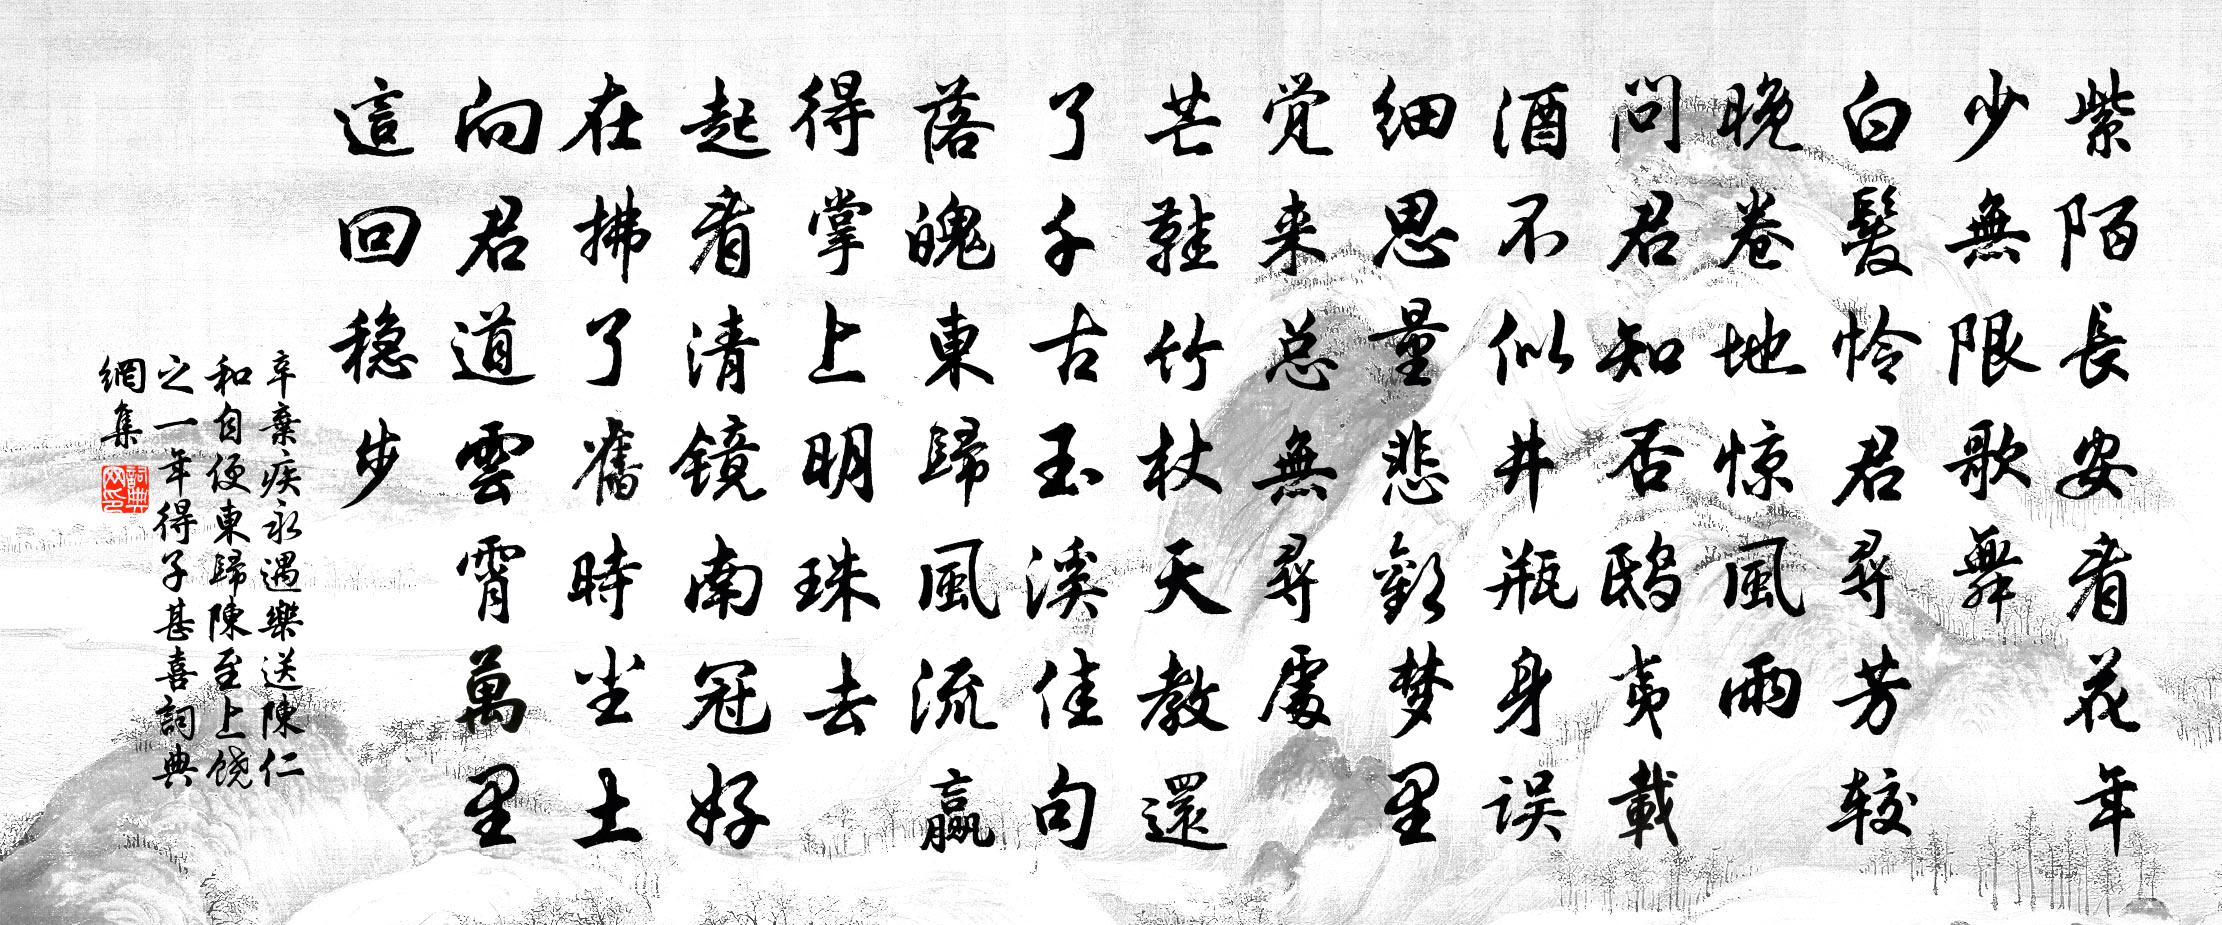 紫陌長安看花年
少無限歌舞
白髮怜君尋芳较
晚卷地惊風雨
问君知否鸱夷載
酒不似井瓶身误
细思量悲歡梦里
觉来总無尋處
芒鞋竹杖天教還
了千古玉溪佳句
落魄東歸風流赢
得掌上明珠去
起看清镜南冠好
在拂了舊時尘土
向君道雲霄萬里
這回穏步
辛棄疾永遇樂送陳仁
和自便東歸陳至上饶
之一年得子甚喜詞典
網集
詞典网印